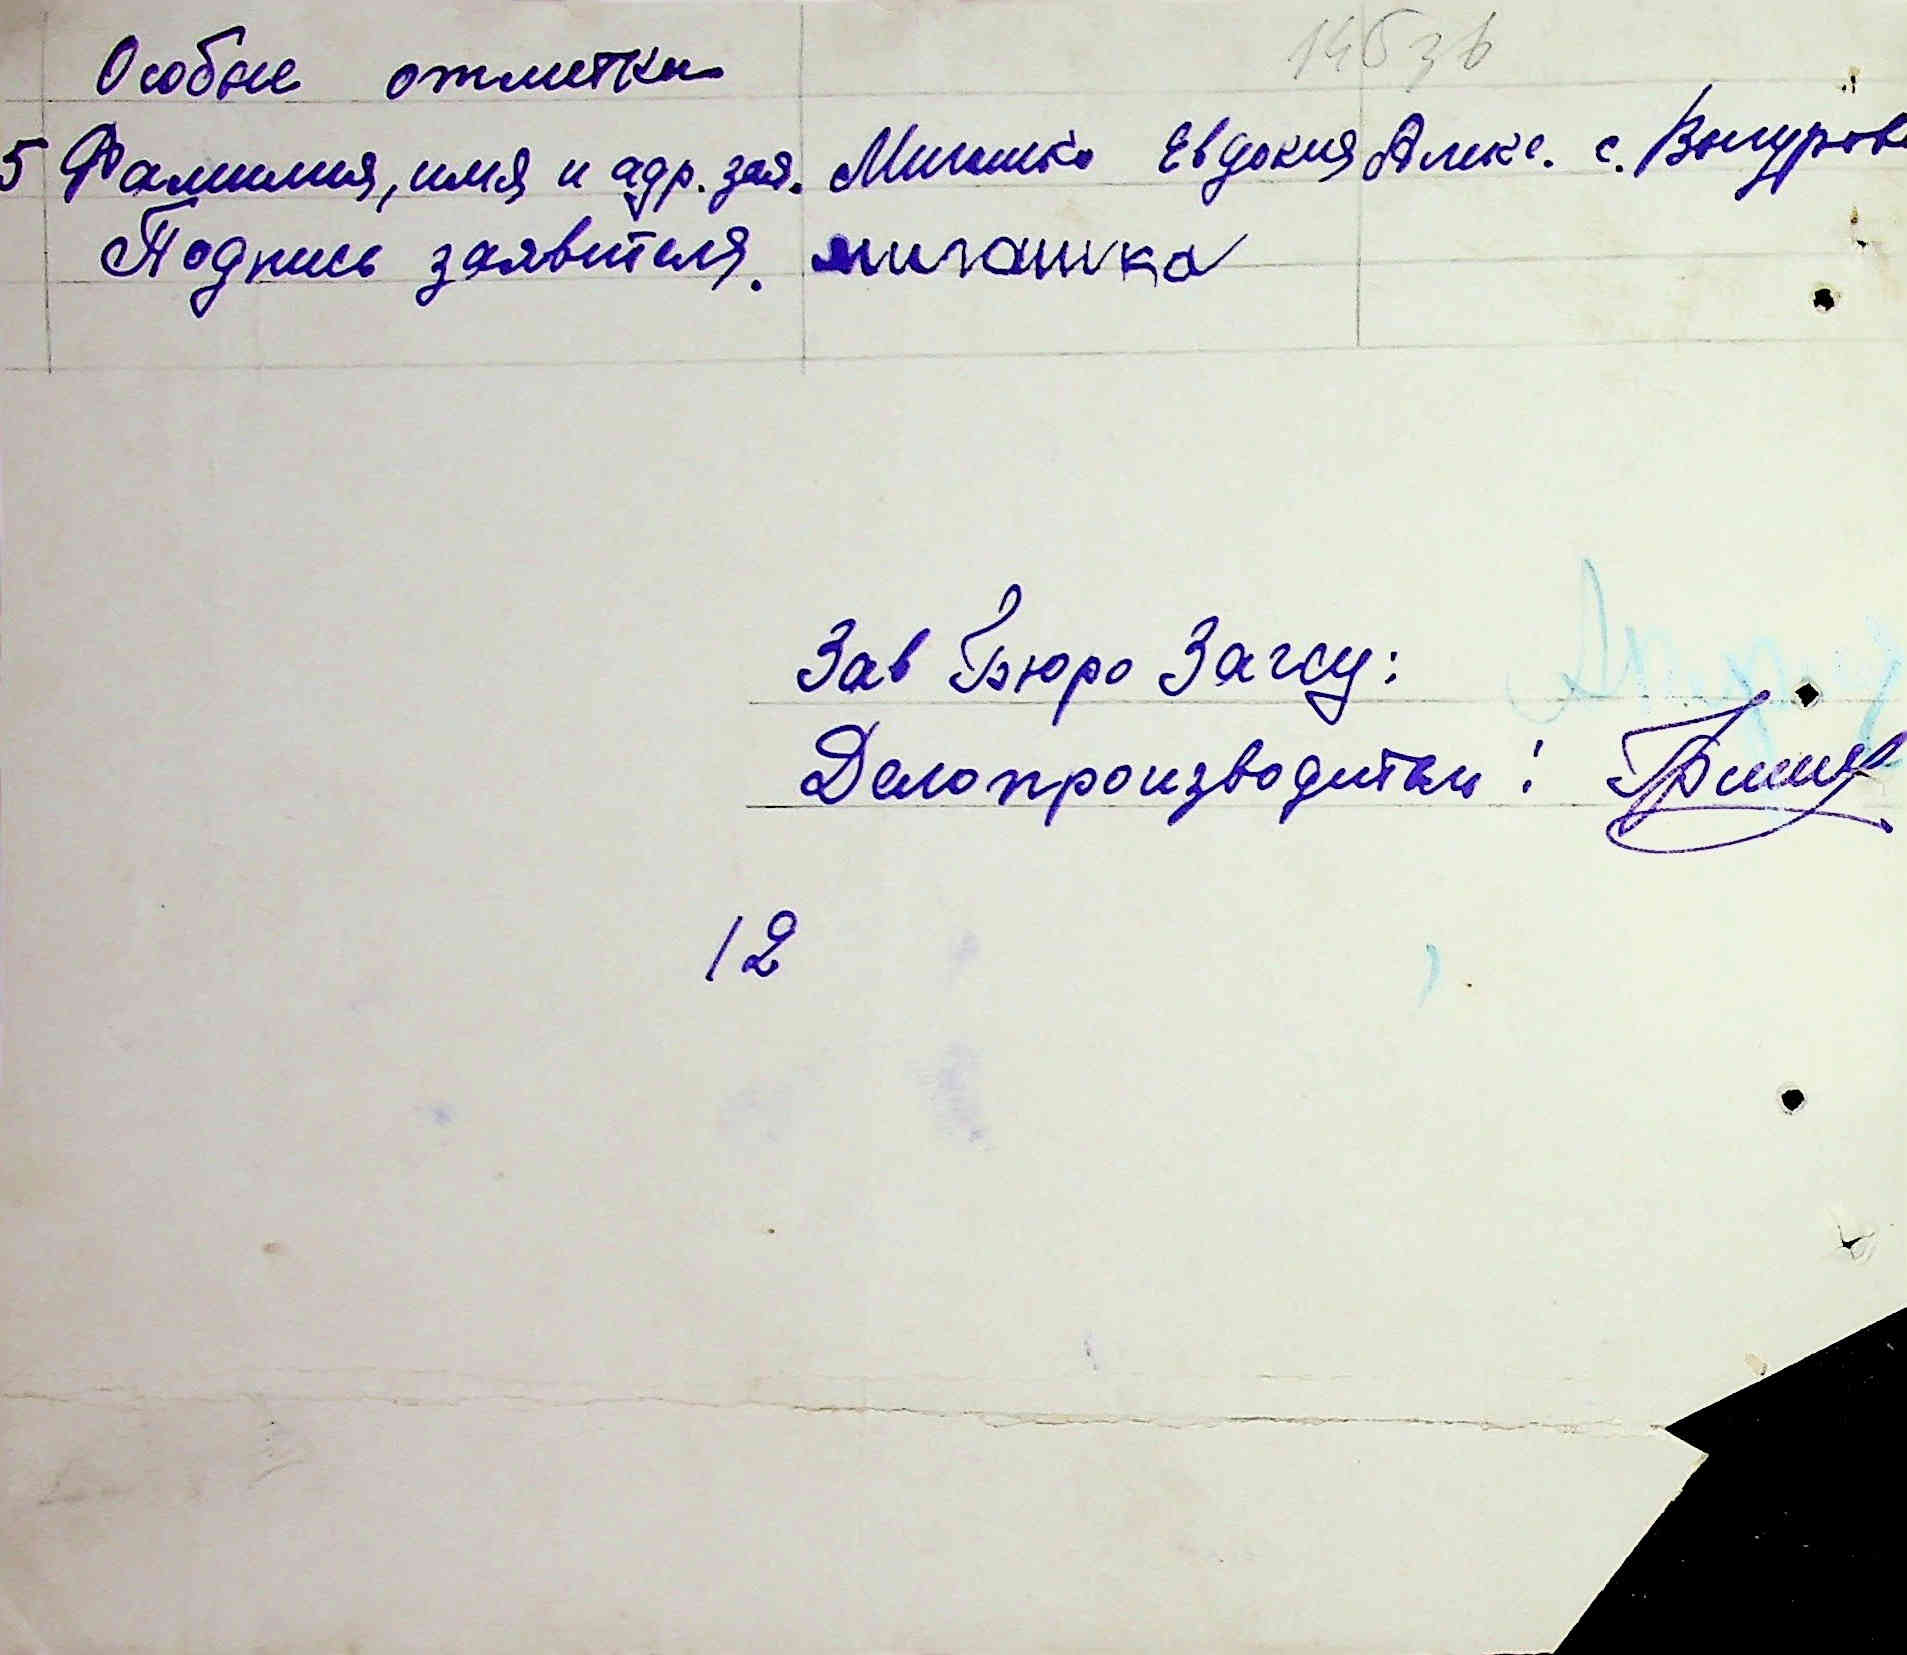 Особые отметки
5 Фамилия, имя и адр. зая. Мигашко Евдокия Алекс. с. Вигуров
Подпись заявителя. мигашка
Зав Бюро Загсу:
Делопроизводитель:
12